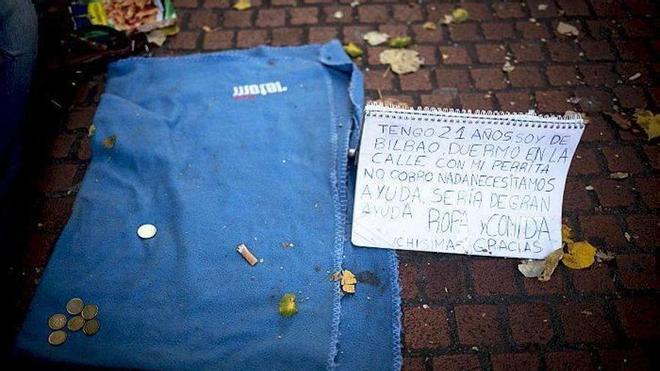 TENGO 21 AÑOS SOY DE
BILBAO DUERMO EN LA
CALLE CON MI PERRITA
NO COBRO NADA NECESITAMOS
AYUDA. SERIA DE GRAN
AYUDA ROPA Y COMIDA
¡CHISIMAS GRACIAS